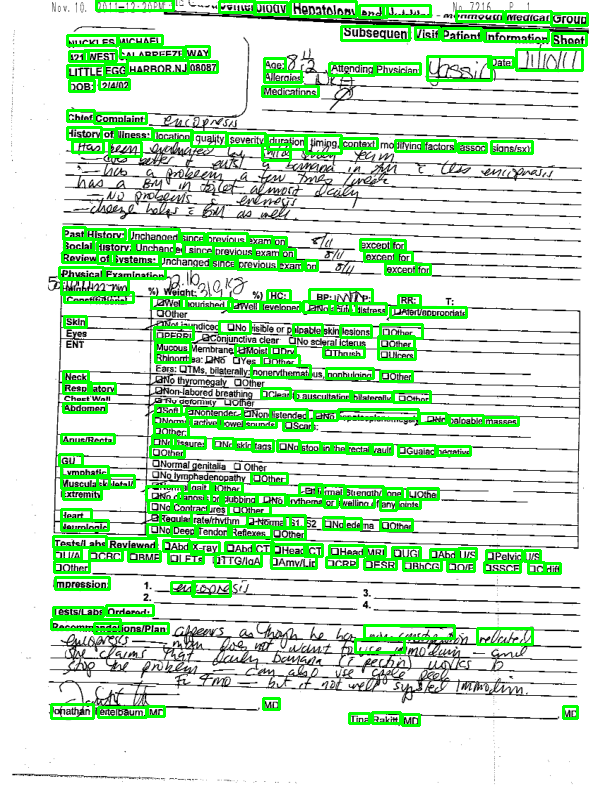 Nov. 10, 2011 12:20PM Gastroenterology Hepatology and Nutrition - Monmouth Medical Group No. 7216 P. 1
Subsequent Visit Patient Information Sheet
NUCKLES, MICHAEL
421 WEST CALABREEZE WAY
LITTLE EGG HARBOR, NJ 08087
DOB: 2/4/02
Age: Attending Physician: Date: 11/10/11
Allergies:
Medications:
Chief Complaint: encopresis
History of Illness: location quality severity duration timing, context modifying factors assoc signs/sx:
Has been evaluated by child study team
- does better if eats a banana in AM c less encopresis
- has a problem a few times / week
has a BM in toilet almost daily
- No problems c enuresis
- cheeze helps c BM as well.
Past History: Unchanged since previous exam on 8/11 except for
Social History: Unchanged since previous exam on 8/11 except for
Review of Systems: Unchanged since previous exam on 8/11 except for
Physical Examination
%) Weight: 31.9 kg %) HC: BP: P: RR: T:
Constitutional ❑Well nourished ❑Well developed ❑No acute distress ❑Alert/appropriate
❑Other
Skin ❑Not jaundiced ❑No visible or palpable skin lesions ❑Other
Eyes ❑PERRL ❑Conjunctiva clear ❑No scleral icterus ❑Other
ENT Mucous Membrane ❑Moist ❑Dry ❑Thrush ❑Ulcers
Rhinorrhea: ❑No ❑Yes ❑Other
Ears: ❑TMs, bilaterally, nonerythematous, nonbulging ❑Other
Neck ❑No thyromegaly ❑Other
Respiratory ❑Non-labored breathing ❑Clear to auscultation bilaterally ❑Other
Chest Wall ❑No deformity ❑Other
Abdomen ❑Soft ❑Nontender ❑Nondistended ❑No hepatosplenomegaly ❑No palpable masses
❑Normoactive bowel sounds ❑Scars:
❑Other:
Anus/Rectal ❑No fissures ❑No skin tags ❑No stool in the rectal vault ❑Guaiac negative
❑Other
GU ❑Normal genitalia ❑Other
Lymphatic ❑No lymphedenopathy ❑Other
Musculoskeletal/ ❑Normal gait ❑Other ❑Normal Strength/Tone ❑Other
Extremity ❑No cyanosis or clubbing ❑No erythema or swelling of any joints
❑No Contractures ❑Other
Heart ❑Regular rate/rhythm ❑Normal S1, S2 ❑No edema ❑Other
Neurologic ❑No Deep Tendon Reflexes ❑Other
Tests/Labs Reviewed ❑Abd X-ray ❑Abd CT ❑Head CT ❑Head MRI ❑UGI ❑Abd U/S ❑Pelvic U/S
❑U/A ❑CBC ❑BMP ❑LFTs ❑TTG/IgA ❑Amy/Lip ❑CRP ❑ESR ❑BhCG ❑O/P ❑SSCE ❑C diff
❑Other
Impression: 1. encopresis 3.
2. 4.
Tests/Labs Ordered:
Recommendations/Plan appears as though he has non-constipation related
encopresis - mom does not want to use immodium - and
she claims that daily banana (? pectin) works to
stop the problem - can also use apple peel
F/u 4 mo - but if not well suggested Immodium.
Jonathan Teitelbaum, MD , MD Tina Rakitt, MD , MD